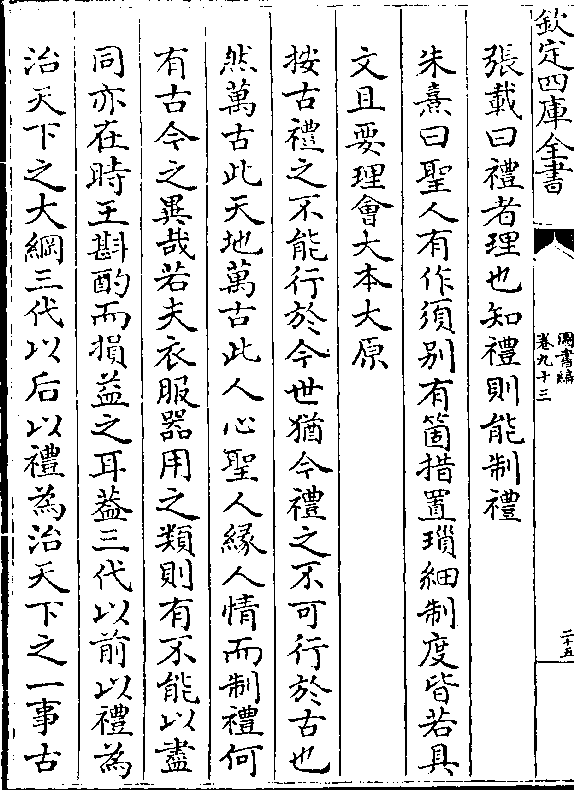 欽定四庫全書
圖書編
卷九十三
二十五
張載曰禮者理也知禮則能制禮
朱熹曰聖人有作須别有箇措置瑣細制度皆若具
文且要理會大本大原
按古禮之不能行於今世猶今禮之不可行於古也
然萬古此天地萬古此人心聖人緣人情而制禮何
有古今之異哉若夫衣服器用之類則有不能以盡
同亦在時王斟酌而損益之耳葢三代以前以禮為
治天下之大綱三代以后以禮為治天下之一事古